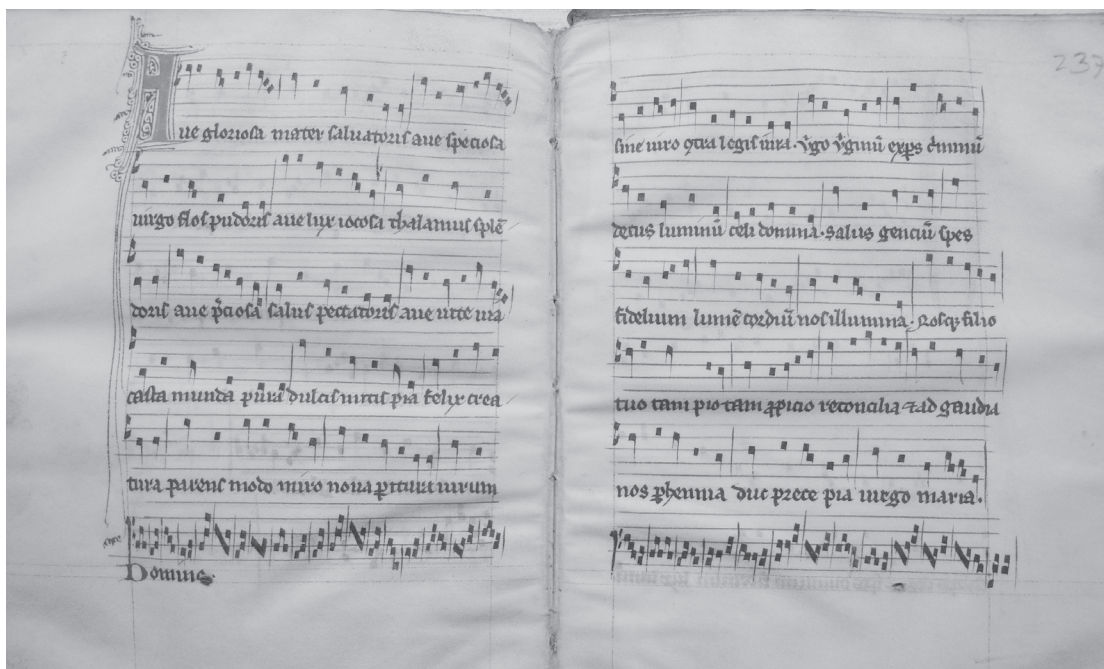 Ave gloriosa mater salvatoris ave speciosa
virgo flos pudoris ave lux iocosa thalamus splē
doris ave p̄ciosa salus peccatoris ave vite via
casta munda pura dulcis mitis pia felix crea
tura parens modo miro nova paritura virum
Domino
237
sine viro ꝯtra legis iura. v̄go v̄ginū exp̱s c̄iminū
decus luminū celi domina. salus genciū spes
fidelium lumē cordiū nos illumina. Nosqꝫ filio
tuo tam pio tam ꝓpicio reconcilia ⁊ ad gaudia
nos ꝑhennia duc prece pia virgo maria.